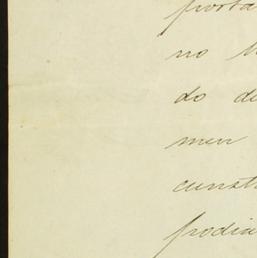 porta
no
do de
meu
const
podia